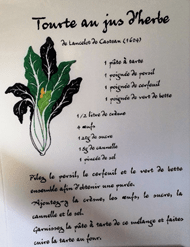 Tourte au jus d'herbe
de Lancelot de Casteau (1604)
1 pâte à tarte
1 poignée de persil
1 poignée de cerfeuil
1 poignée de vert de bette
1/2 litre de crème
4 œufs
120g de sucre
1.5g de cannelle
1 pincée de sel
Pilez le persil, le cerfeuil et le vert de bette
ensemble afin d'obtenir une purée.
Ajoutez-y la crème, les œufs, le sucre, la
cannelle et le sel.
Garnissez la pâte à tarte de ce mélange et faites
cuire la tarte au four.